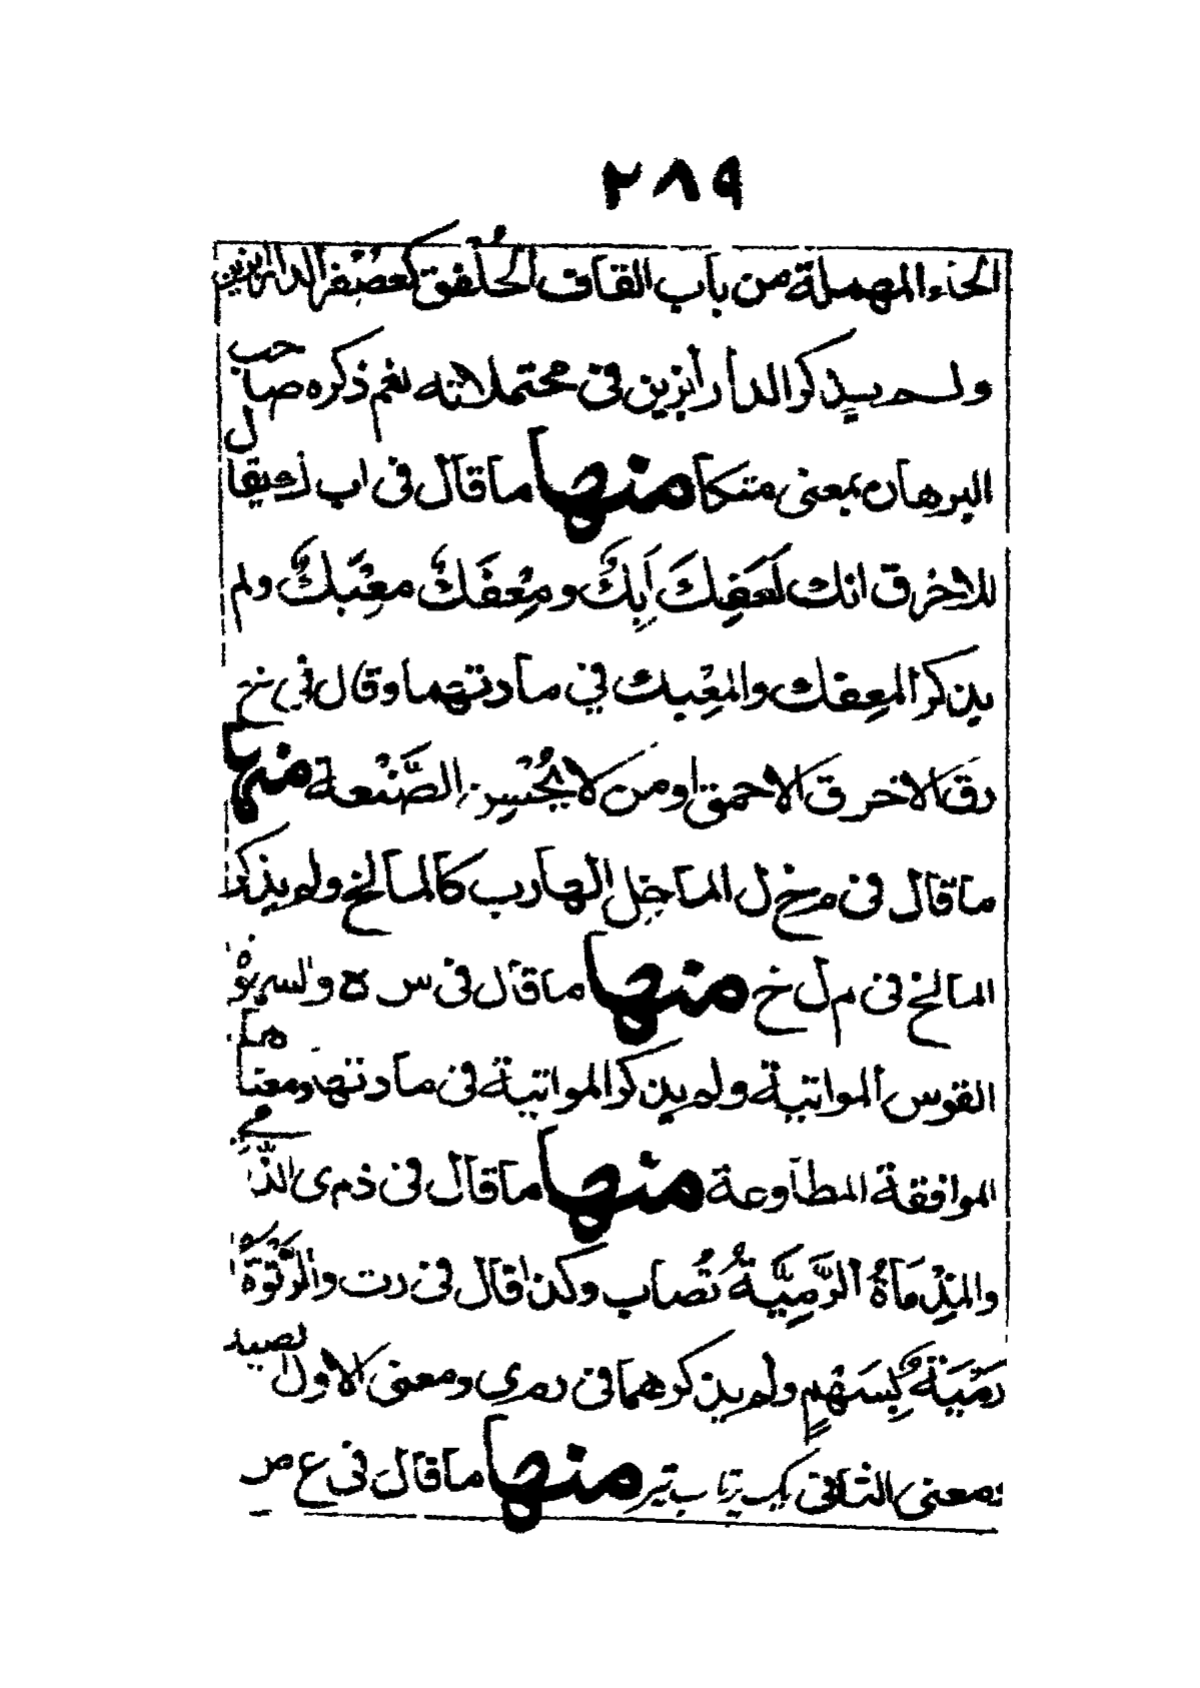 ٢٨٩
الحاء المهملة من باب القاف الحُلْفق كعُصْفر الدارابزين
ولم يذكر الدارابزين في محتملاته نعم ذكره صاحب
البرهان بمعنى متكا منها ما قال في اب ك يقال
للاخرق انك لَعَفِكَ اَبِكٌ ومِعْفَكٌ مِعْبَكٌ ولم
يذكر المعِفك والمعِبك في مادتهما وقال في خ
رق الاخرق الاحمق او من لا يُحْسِن الصَّنْعة منها
ما قال في م خ ل الماخِل الهارب كالمالخ ولم يذكر
المالخ في م ل خ منها ما قال في س ه و السهوة
القوس المواتية ولم يذكر المواتية في مادتها ومعناها
الموافقة المطاوعة منها ما قال في ذ م ى الذَّمى
والمِذْماةُ الرَّمِيَّةُ تُصاب وكذا قال في رت و الرَّتْوَةُ
رَمْيَةٌ بِسَهْمٍ ولم يذكرهما في رمي ومعنى الاول الصيد
ومعنى الثاني يك پرتاب تير منها ما قال في ع ص